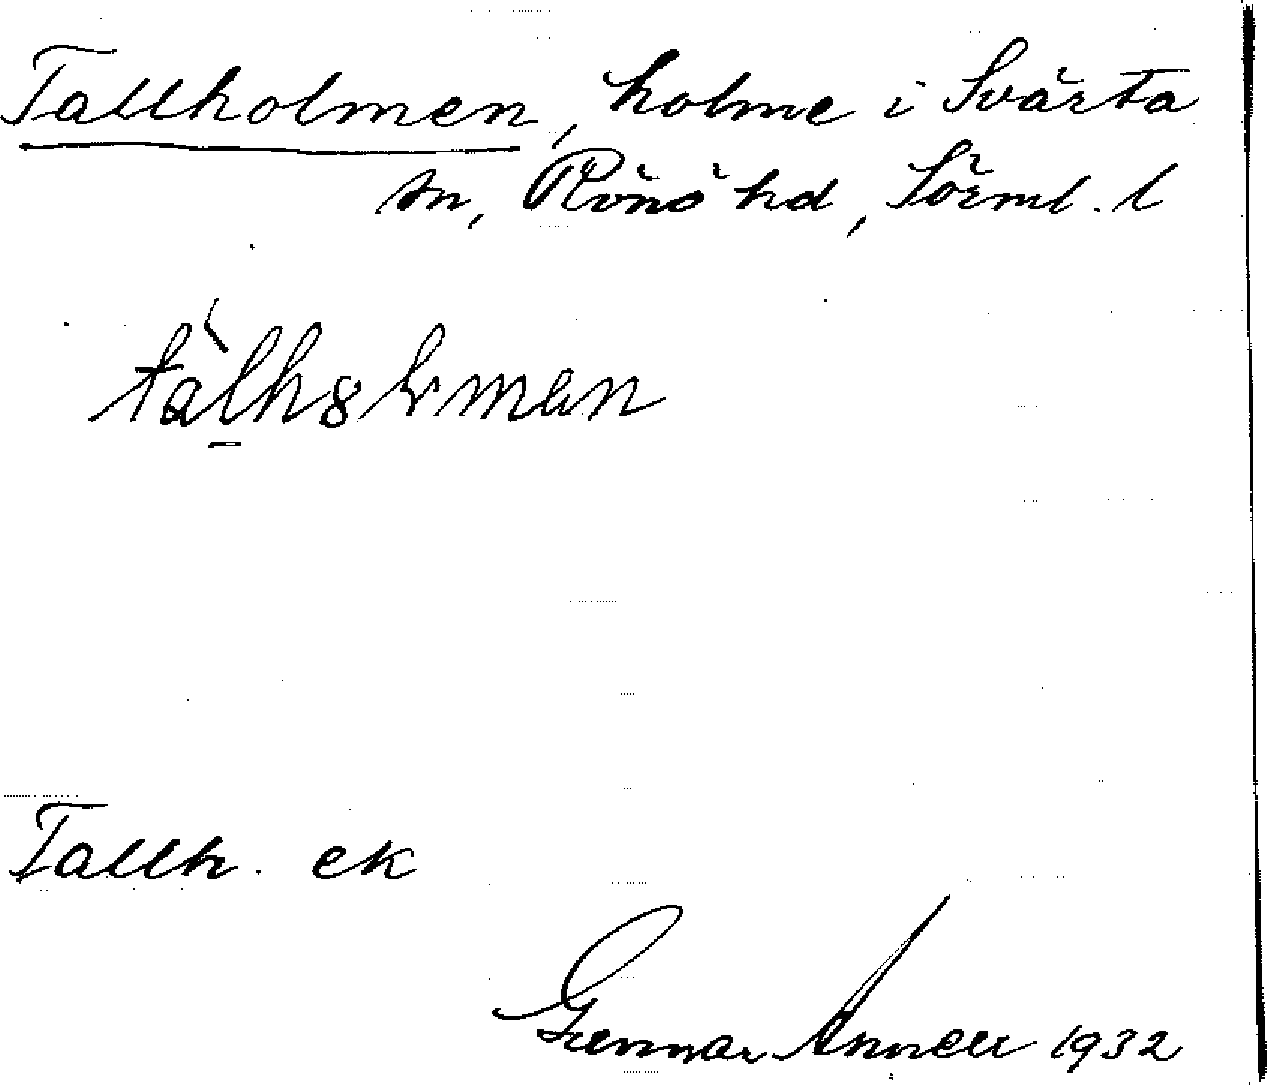 Tallholmen, holme i Svärta
sn, Rönö hd, Sörml. l
Tallh. ek
Gunnar Annell 1932